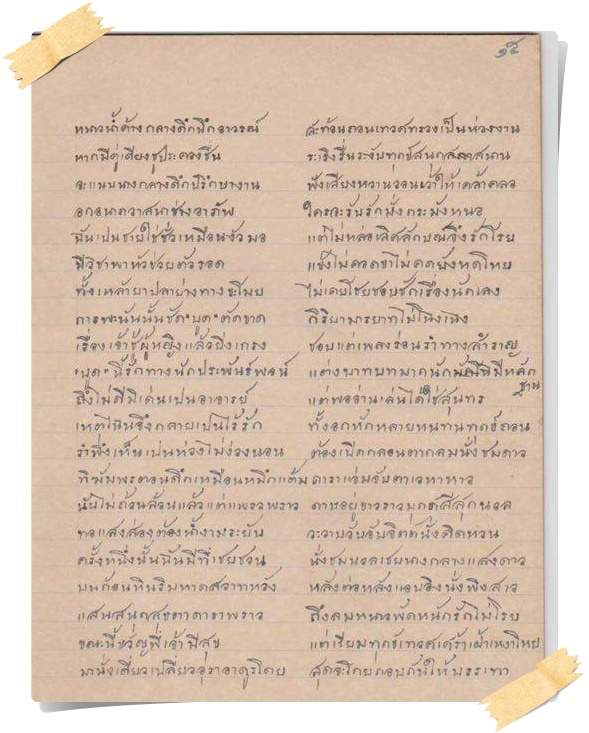 ๑๕
หนาวน้ำค้างกลางดึกนึกอาวรณ์ สะท้อนถอนเทวศทรวงเป็นห่วงงาน
หากมีคู่เสียงชูประคองชื่น ระเริงรื่นระงับทุกข์สนุกสนาน
จะแนบนางกลางดึกปรึกษางาน ฟังเสียงหวานวอนเว้าให้เคล้าคลอ
อกอนาถวาสนาช่างอาภัพ ใครจะรับรักมั่งกระมังหนอ
ฉันเปนชายใช่ชั่วเหมือนงัวมอ แต่ไม่หล่อเลิศลักษณจึงรักโรย
มีวิชาพาหัวช่วยตัวรอด แข้งไม่คอดขาไม่คดยังหดโหย
ทั้งเหล้ายาปลาย่างทางขะโมย ไม่เคยโชยชอบชักเรื่องนักเลง
การพะนันนั้นชัด "บุด" ตัดขาด กิริยามารยาทไม่โฉงเฉง
เรื่องเจ้าชู้ผู้หญิงแล้วยิ่งเกรง ชอบแต่เพลงร่อนรำทางสำราญ
"บุด" นี้รักทางนักประพันธ์พจน์ แต่งบาทบทมากนักมีหลักฐาน
ถึงไม่ดีมีเด่นเปนอาจารย์ แต่พออ่านเล่นได้ใช่สุนทร
เหตุไฉนจึงกลายเปนไร้รัก ทั้งอกหักหลายหนทนทุกข์ถอน
รำพึงเห็นเปนห่วงไม่ง่วงนอน ต้องเปิดกลอนตากลมนั่งชมดาว
ทิฆัมพรตอนดึกเหมือนหมึกแต้ม ดาราแจ่มจับตาเวหาหาว
นับไม่ถ้วนล้วนแล้วแต่แพรวพราว
พอแสงส่องต้องน้ำงามระยับ วะวาบวับจับจิตต์นั่งคิดหวน
ครั้งหนึ่งนั้นฉันมีที่เชยชวน นั่งชมนวลเชยนางกลางแสงดาว
บนก้อนหินริมหาดสวาทหวัง หลังต่อหลังแอบอิงนั่งพิงสาว
แสนสนุกสุขตาดาราพราว ถึงลมหนาวพัดหนักรักไม่โรย
ขณะนี้ขวัญพี่เจ้ามีสุข แต่เรียมทุกข์เทวศ
มานั่งเดียวเปลี่ยวอุราอาดูรโดย